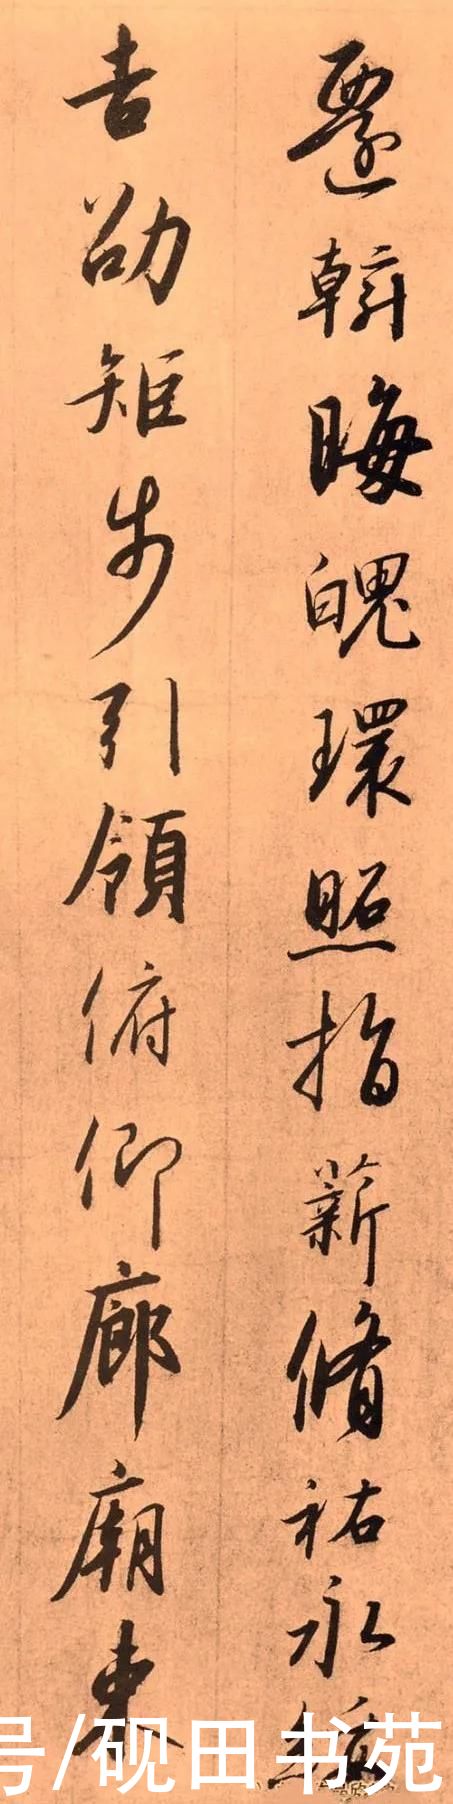 遷斡晦魄環照指薪脩祐永綏
吉劭矩步引領俯仰廊廟束
号/砚田书苑